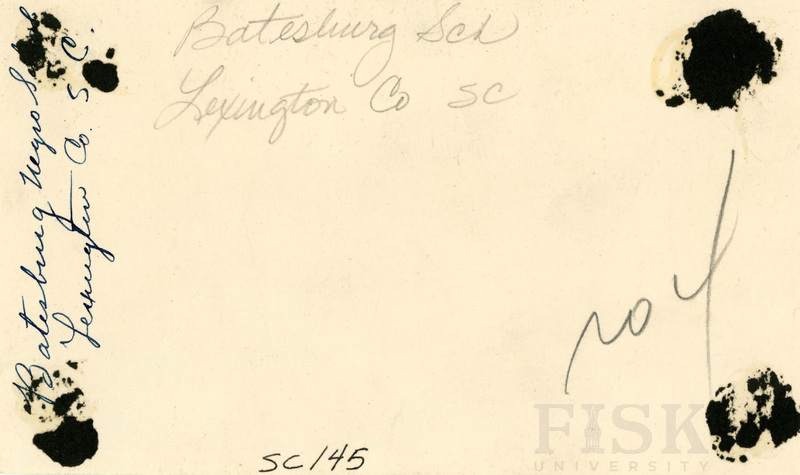 Batesburg Sch
Lexington Co SC
Batesburg Negro Sch
Lexington Co. S C.
SC145
FISK
UNIVERSITY